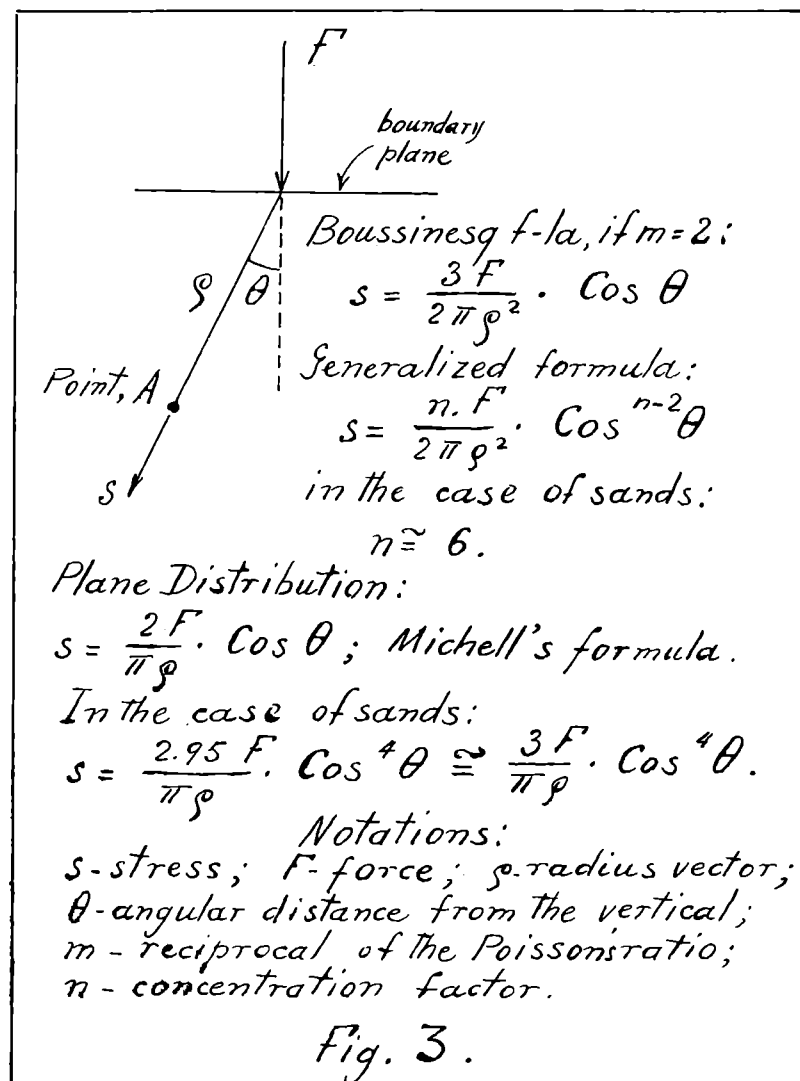 F
boundary
plane
Boussinesq f-la, if m=2:
s = 3 F / 2 π ρ² · Cos θ
ρ θ
Generalized formula:
Point, A
s = n. F / 2 π ρ² · Cos ⁿ⁻² θ
s
in the case of sands:
n ≅ 6.
Plane Distribution:
s = 2 F / π ρ · Cos θ ; Michell's formula.
In the case of sands:
s = 2.95 F / π ρ · Cos ⁴ θ ≅ 3 F / π ρ · Cos ⁴ θ.
Notations:
s-stress; F-force; ρ-radius vector;
θ-angular distance from the vertical;
m - reciprocal of the Poisson's ratio;
n - concentration factor.
Fig. 3.